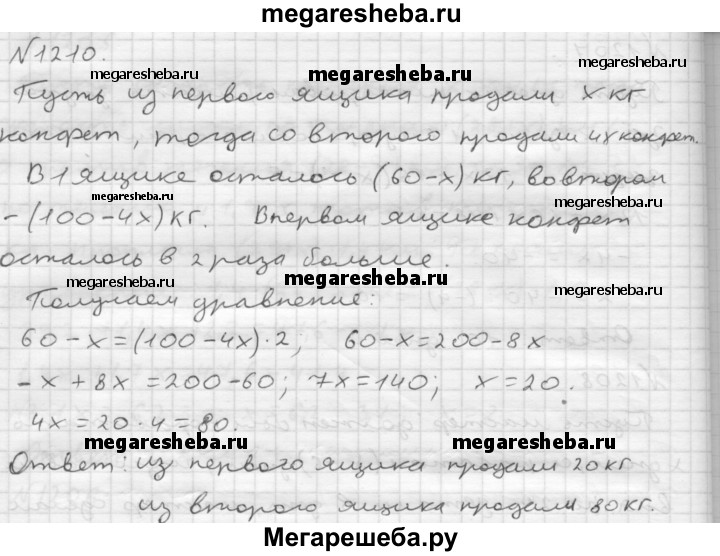 megaresheba.ru
N1210.
megaresheba.ru megaresheba.ru
Пусть из первого ящика продали x кг
конфет, тогда со второго продали 4x конфет.
В 1 ящике осталось (60-x) кг, во втором
megaresheba.ru
- (100-4x) кг. В первом ящике конфет
осталось в 2 раза больше.
megaresheba.ru megaresheba.ru
Получаем уравнение:
60-x=(100-4x)·2; 60-x=200-8x
-x+8x=200-60; 7x=140; x=20.
4x=20·4=80.
megaresheba.ru megaresheba.ru
Ответ: из первого ящика продали 20 кг
из второго ящика продали 80 кг.
Мегарешеба.ру